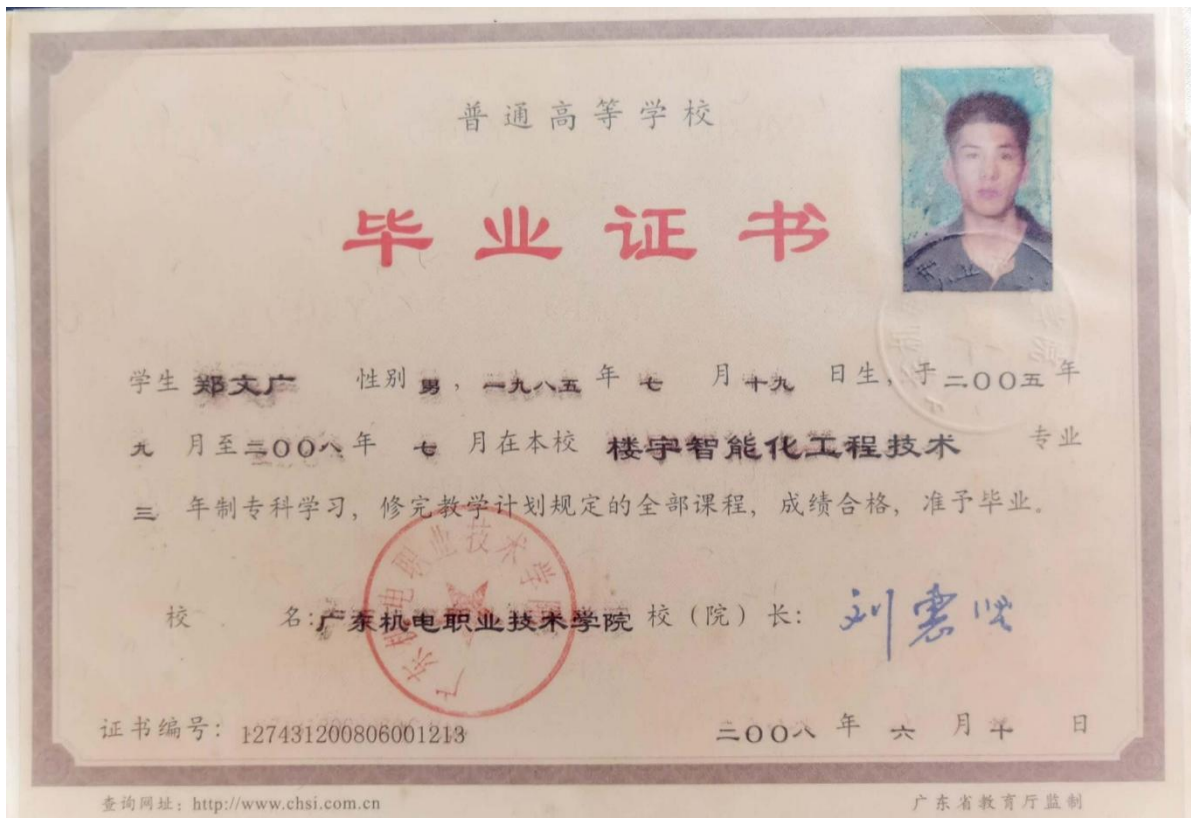 普通高等学校
毕业证书
学生 郑文广 性别 男，一九八五 年 七 月 十九 日生，于二〇〇五年
九 月至二〇〇八年 七 月在本校 楼宇智能化工程技术 专业
三 年制专科学习，修完教学计划规定的全部课程，成绩合格，准予毕业。
校 名：广东机电职业技术学院 校（院）长：
广东机电职业技术学院
证书编号：127431200806001213
二〇〇八 年 六 月 日
查询网址：http://www.chsi.com.cn
广东省教育厅监制